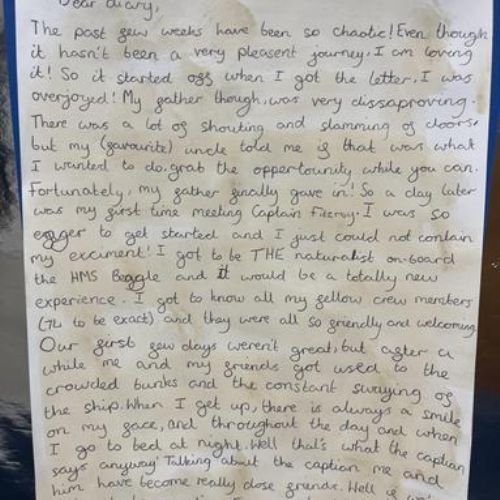 Dear diary,
The past few weeks have been so chaotic! Even though
it hasn't been a very pleasent journey, I am loving
it! So it started off when I got the letter, I was
overjoyed! My father though, was very dissaproving.
There was a lot of shouting and slamming of doors,
but my (favourite) uncle told me if that was what
I wanted to do, grab the oppertounity while you can.
Fortunately, my father finally gave in! So a day later
was my first time meeting Captain Fitzroy. I was so
egger to get started and I just could not contain
my exciment! I got to be THE naturalist on-board
the HMS Beagle and it would be a totally new
experience. I got to know all my fellow crew members
(74 to be exact) and they were all so friendly and welcoming
Our first few days weren't great, but after a
while me and my friends got used to the
crowded bunks and the constant swaying of
the ship. When I get up, there is always a smile
on my face, and throughout the day and when
I go to bed at night. Well that's what the captian
says anyway! Talking about the captian me and
him have become really close friends. Hell is